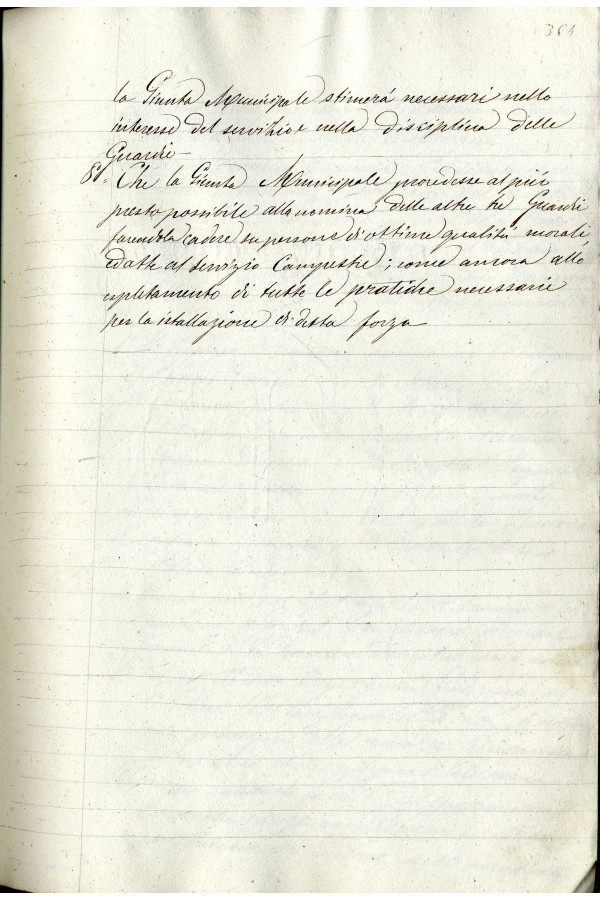 364
la Giunta Municipale stimerá necessari nello
interesse del servizio e nella disciplina delle
Guardie –
8º. Che la Giunta Municipale procedesse al piú
presto possibile alla nomina delle altre tre Guardi
facendola cadere su persone di ottime qualitá morali,
adatte al servizio Campestre; come ancora allo
espletamento di tutte le pratiche necessarie
per la istallazione di detta forza